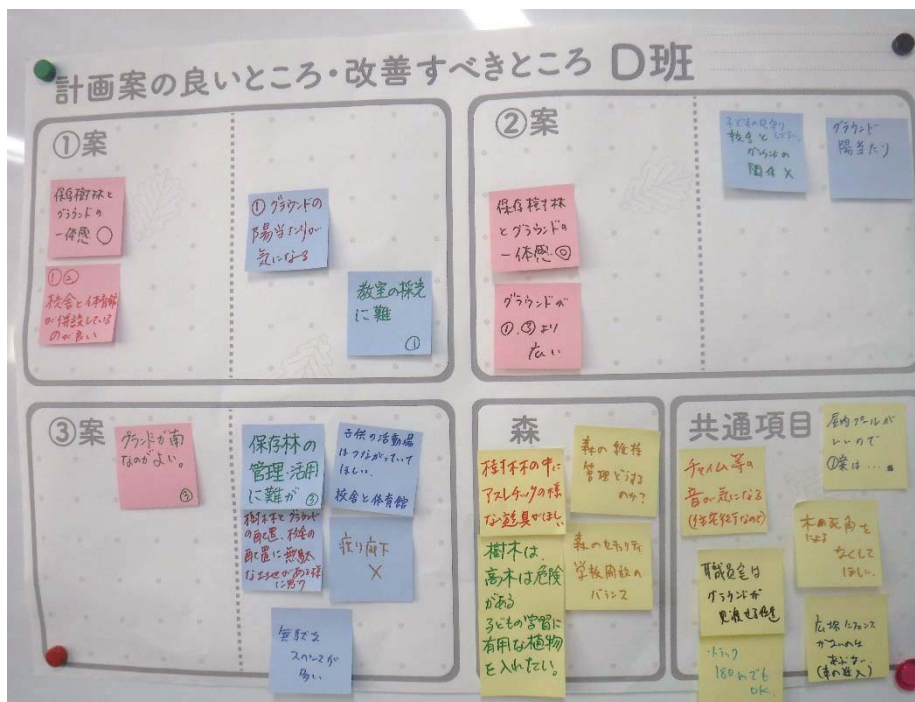 計画案の良いところ・改善すべきところ D班
①案
保存樹林と
グラウンドの
一体感 ○
①②
校舎と体育館
が併設している
のが良い
①グラウンドの
陽当たりが
気になる
教室の採光
に難
①
②案
保存樹林
とグラウンドの
一体感◎
グラウンドが
①、③より
広い
子どもの見守り
校舎と
グラウンドの
関係 ×
グラウンド
陽当たり
③案
グランドが南
なのがよい。
③
保存林の
管理・活用
に難が③
樹木林とグラウンド
の配置、校舎の
配置に無駄
子供の活動場
はつながっていて
ほしい。
校舎と体育館
渡り廊下
×
無駄な
スペースが
多い
森
樹木林の中に
アスレチックの様
な遊具がほしい
森の維持
管理どうする
のか?
樹木は、
高木は危険
がある
子どもの学習に
有用な植物
を入れたい。
森のセキュリティ
学校開放の
バランス
共通項目
チャイム等の
音が気になる
(住宅街なので)
屋内プールが
いいので
①案は…。
木の死角を
による
なくして
ほしい。
職員室は
グラウンドが
見渡せる位置
トラック
180mでも
OK.
広場にフェンス
がないのは
あぶない